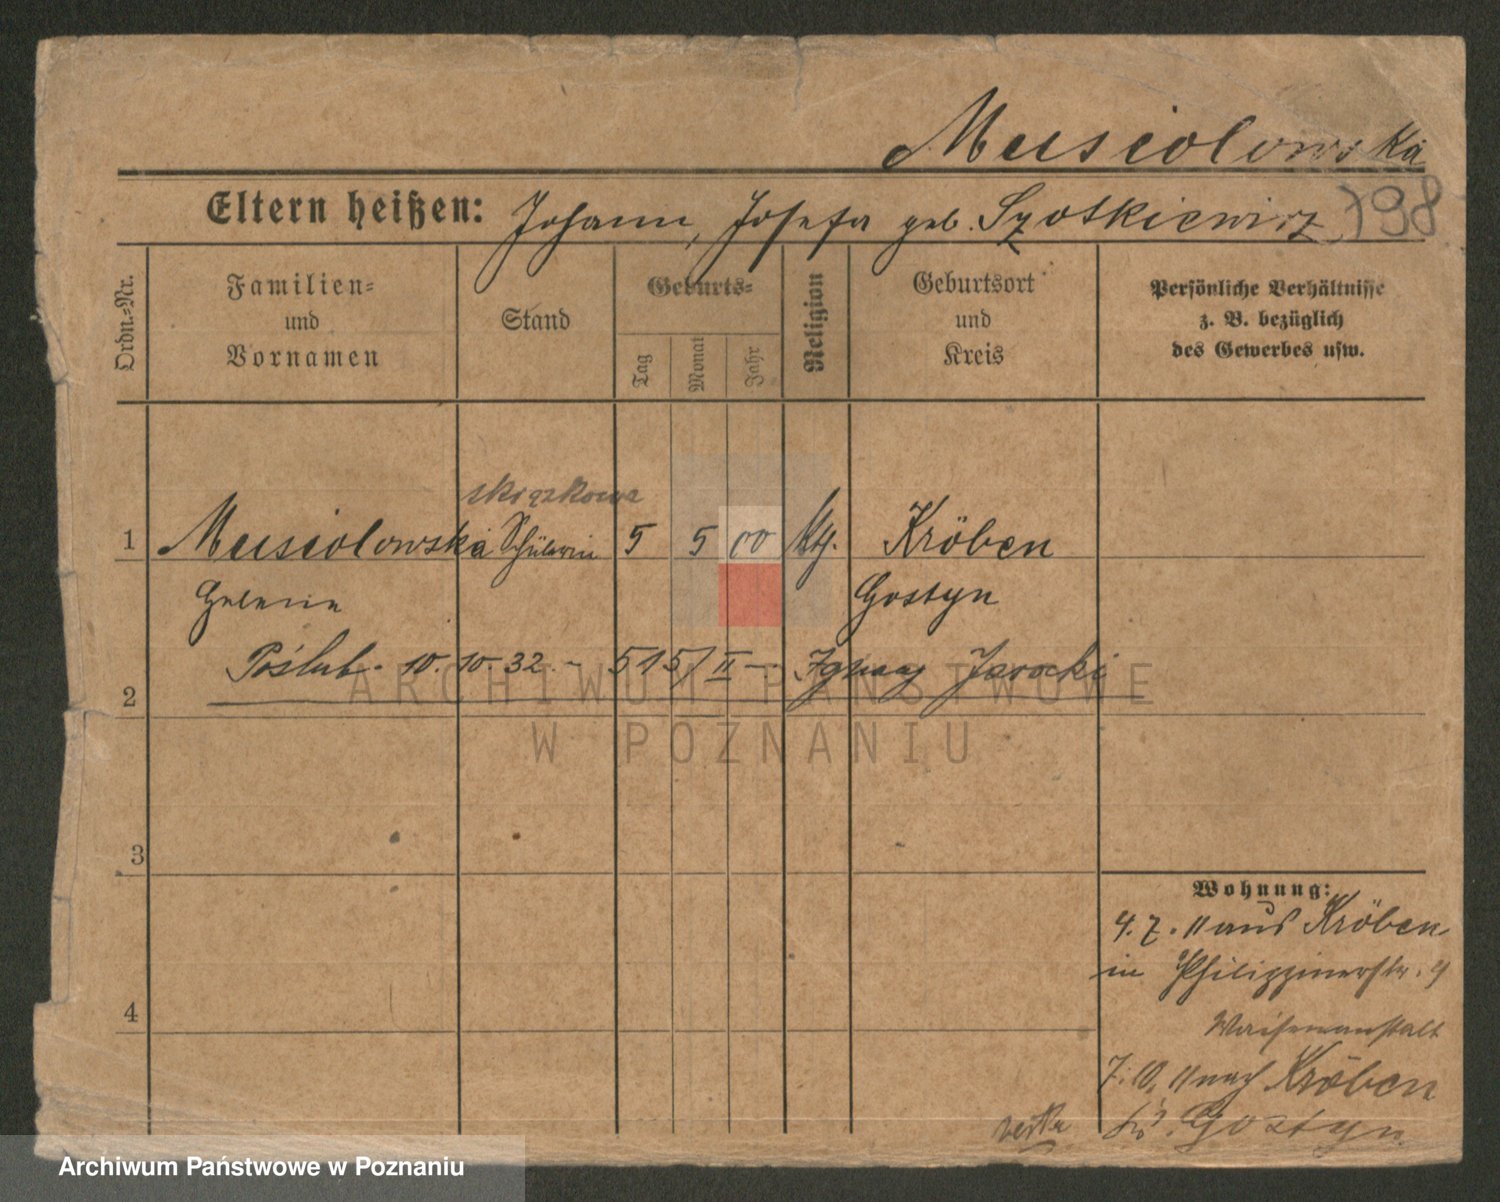 Musiolowska
Eltern heißen: Johann, Josefa geb. Szotkiewicz
798
Ordn.-Nr.
Familien-
und
Vornamen
Stand
Geburts-
Tag
Monat
Jahr
Religion
Geburtsort
und
Kreis
Persönliche Verhältnisse
z. B. bezüglich
des Gewerbes usw.
1 Musiolowska Schülerin 5 5 00 kth. Kröben
Gostyn
Poślub. 10. 10. 32. - 515/II - Ignacy Jarocki
2
3
4
Wohnung:
4. 7. 11 aus Kröben
in Philippinerstr. 4
Waisenanstalt
7. 10. 11 nach Kröben
Gostyn
ARCHIWUM PAŃSTWOWE
W POZNANIU
Archiwum Państwowe w Poznaniu